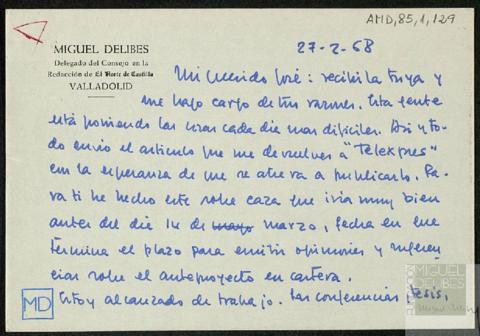 AMD,85,1,129
MIGUEL DELIBES
Delegado del Consejo en la
Redacción de El Norte de Castilla
VALLADOLID
27-2-68
Mi querido José: recibí la tuya y
me hago cargo de tus razones. Esta gente
está poniendo las cosas cada día más difíciles. Así y to-
do envío el artículo que me devuelves a "Telexpres"
con la esperanza de que se atreva a publicarlo. Pa-
ra ti he hecho este sobre caza que iría muy bien
antes del día 14 de mayo marzo, fecha en que
termina el plazo para emitir opiniones y sugeren-
cias sobre el anteproyecto en cartera.
Estoy alcanzado de trabajo. Las conferencias, tesis,
MD
MIGUEL
DELIBES